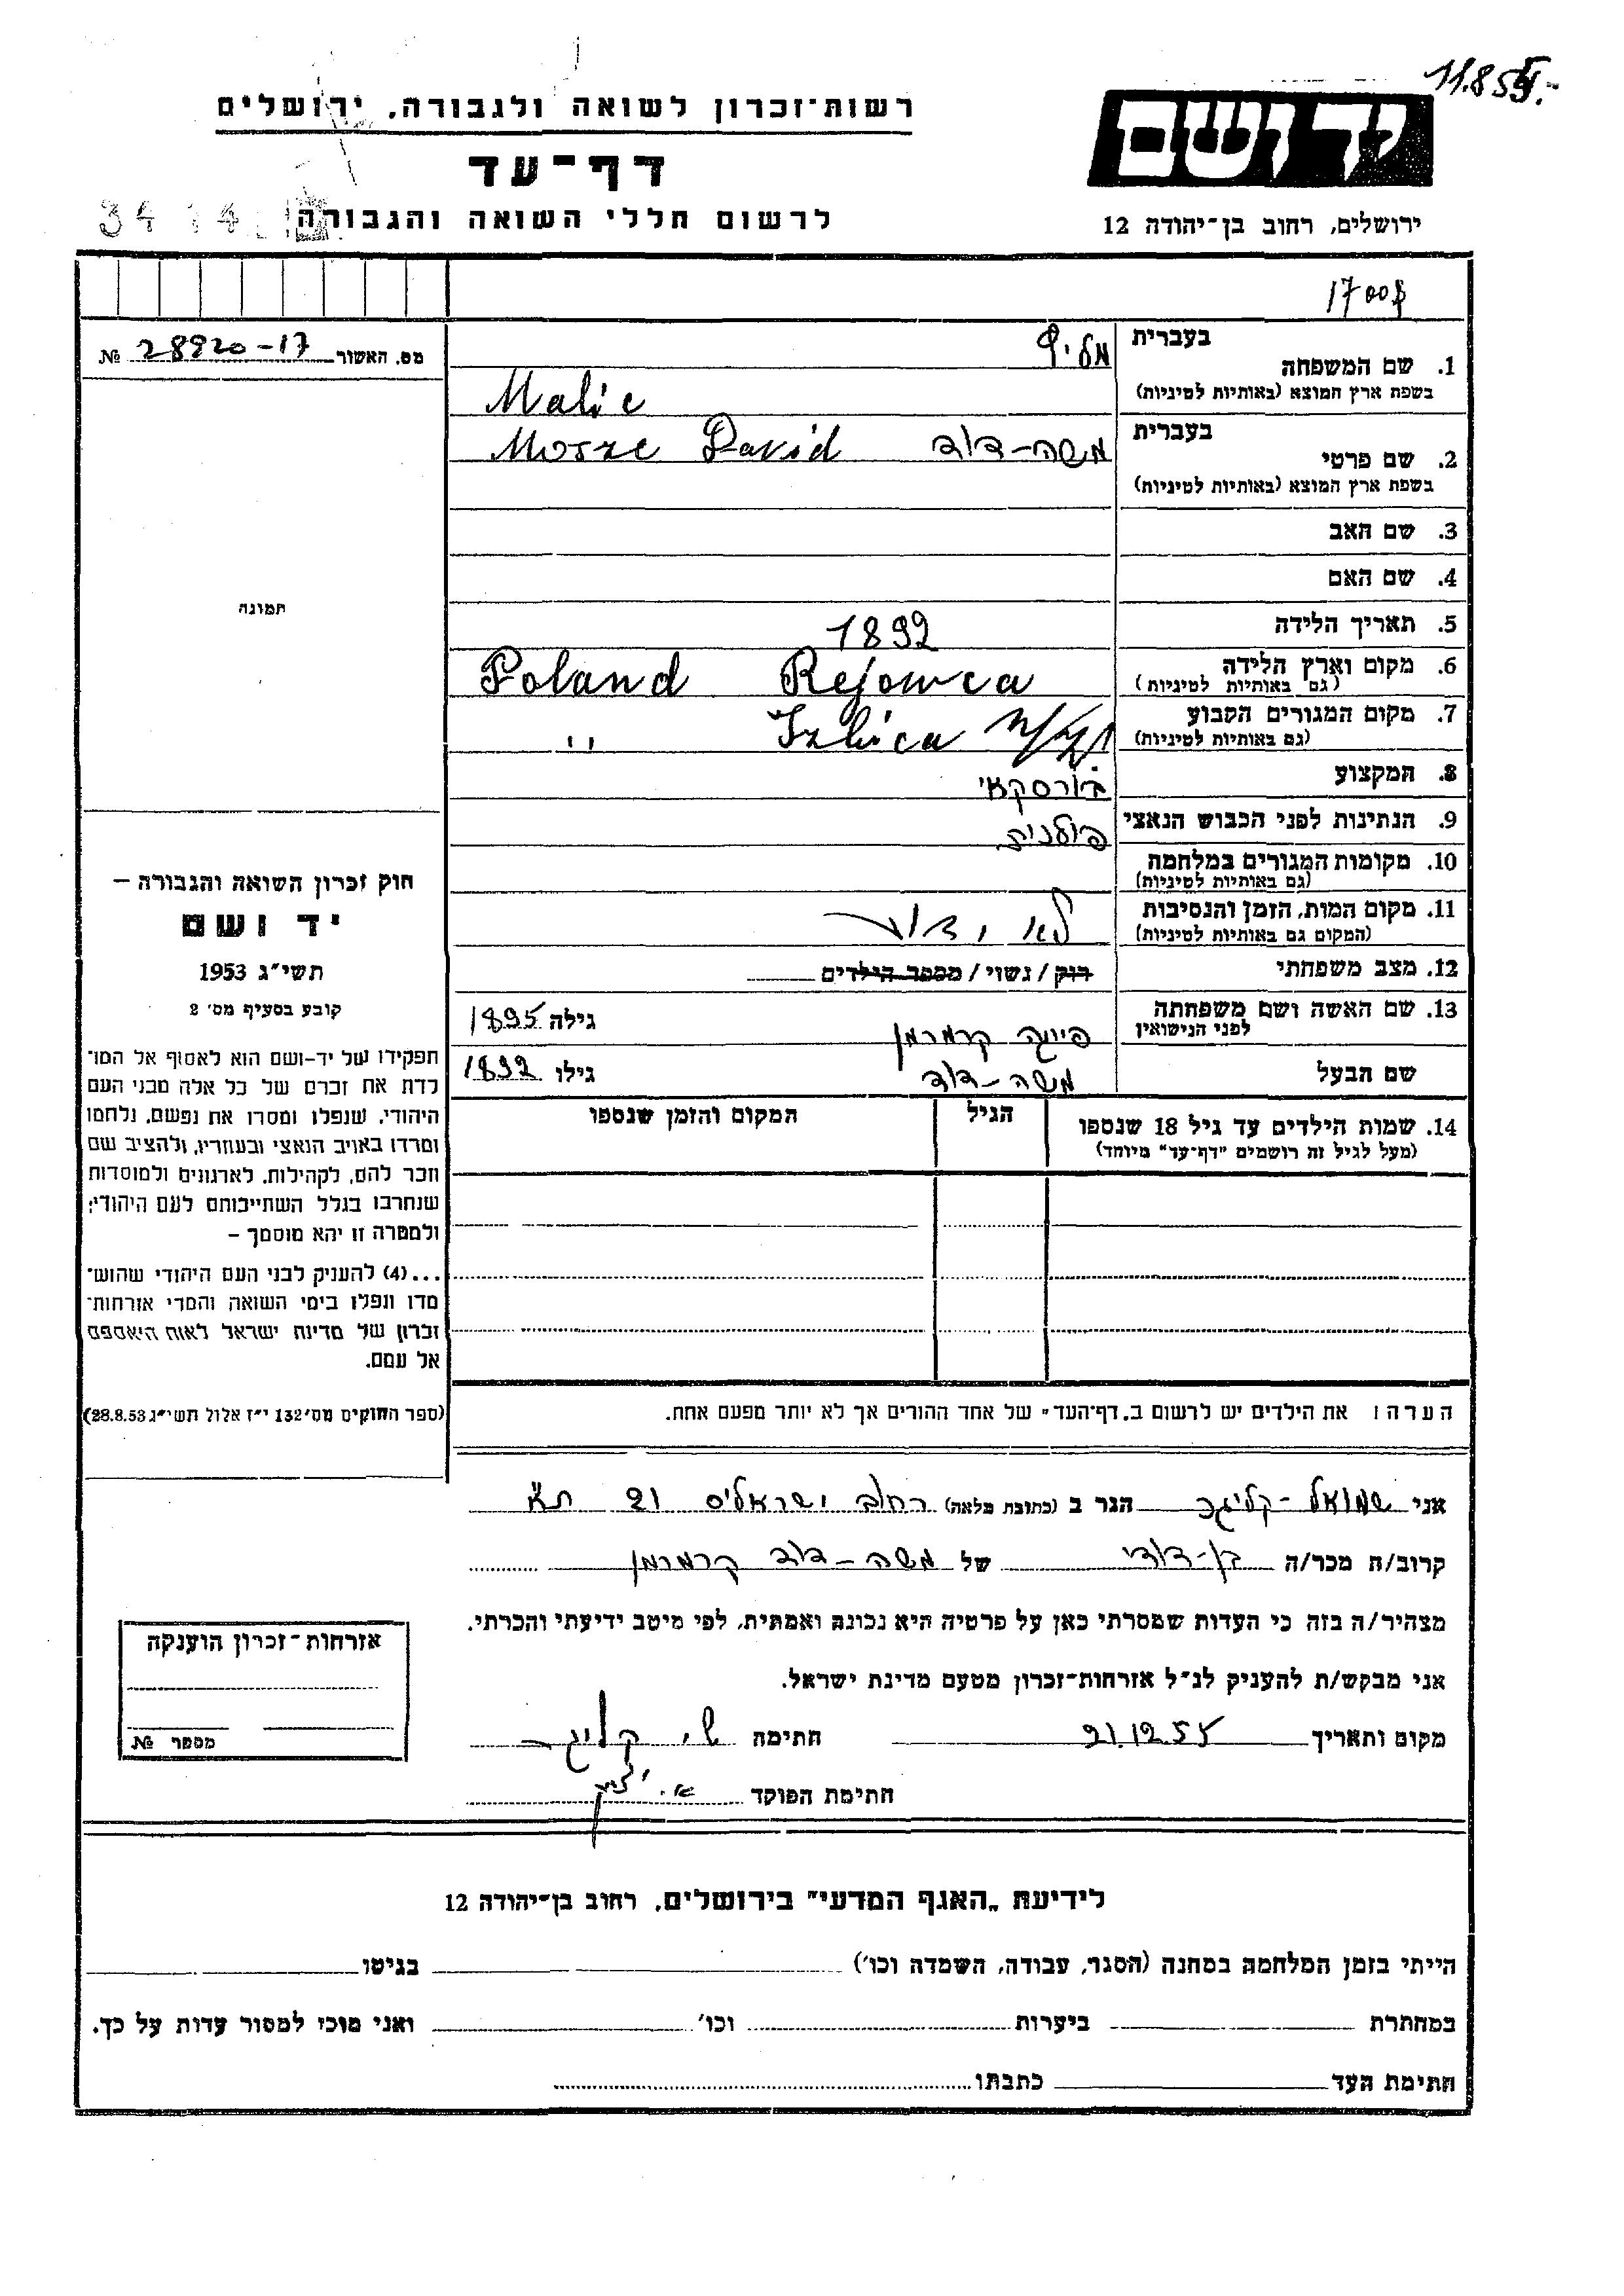 11.8.54.-
רשות־זכרון לשואה ולגבורה, ירושלים
דף־עד
לרשום חללי השואה והגבורה
יד ושם
ירושלים, רחוב בן־יהודה 12
מס. האשור 28920-17 №
בעברית
1. שם המשפחה
בשפת ארץ המוצא (באותיות לטיניות)
Malic
בעברית
2. שם פרטי משה-דוד Mosze David
בשפת ארץ המוצא (באותיות לטיניות)
3. שם האב
4. שם האם
5. תאריך הלידה 1892
6. מקום וארץ הלידה Rejowca Poland
(גם באותיות לטיניות)
7. מקום המגורים הקבוע Izbica "
(גם באותיות לטיניות)
8. המקצוע בורסקאי
9. הנתינות לפני הכבוש הנאצי פולנית
10. מקומות המגורים במלחמה
(גם באותיות לטיניות)
11. מקום המות, הזמן והנסיבות לא ידוע
(המקום גם באותיות לטיניות)
12. מצב משפחתי רוק / נשוי / מספר הילדים
13. שם האשה ושם משפחתה קרמרמן גילה 1895
לפני הנישואין
שם הבעל משה-דוד גילו 1892
14. שמות הילדים עד גיל 18 שנספו הגיל המקום והזמן שנספו
(מעל לגיל זה רושמים "דף־עד" מיוחד)
הערה: את הילדים יש לרשום ב„דף־העד" של אחד ההורים אך לא יותר מפעם אחת.
תמונה
חוק זכרון השואה והגבורה –
יד ושם
תשי"ג 1953
קובע בסעיף מס' 2
תפקידו של יד-ושם הוא לאסוף אל המו־
לדת את זכרם של כל אלה מבני העם
היהודי, שנפלו ומסרו את נפשם, נלחמו
ומרדו באויב הנאצי ובעוזריו, ולהציב שם
וזכר להם, לקהילות, לארגונים ולמוסדות
שנחרבו בגלל השתייכותם לעם היהודי;
ולמטרה זו יהא מוסמך –
...(4) להעניק לבני העם היהודי שהוש־
מדו ונפלו בימי השואה והמרי אזרחות־
זכרון של מדינת ישראל לאות היאספם
אל עמם.
(ספר החוקים מס' 132 י"ז אלול תשי"ג 28.8.53)
אני שמואל - קליגר הגר ב (כתובת מלאה) רחוב ישראליס 21 ת"א
קרוב/ה מכר/ה בן-דודי של משה-דוד קרמרמן
מצהיר/ה בזה כי העדות שמסרתי כאן על פרטיה היא נכונה ואמתית, לפי מיטב ידיעתי והכרתי.
אני מבקש/ת להעניק לנ"ל אזרחות־זכרון מטעם מדינת ישראל.
מקום ותאריך 21.12.55 חתימה ש. קליגר
חתימת הפוקד
אזרחות־זכרון הוענקה
מספר №
לידיעת „האגף המדעי" בירושלים, רחוב בן־יהודה 12
הייתי בזמן המלחמה במחנה (הסגר, עבודה, השמדה וכו') בגיטו
במחתרת ביערות וכו' ואני מוכן למסור עדות על כך.
חתימת העד כתבתו